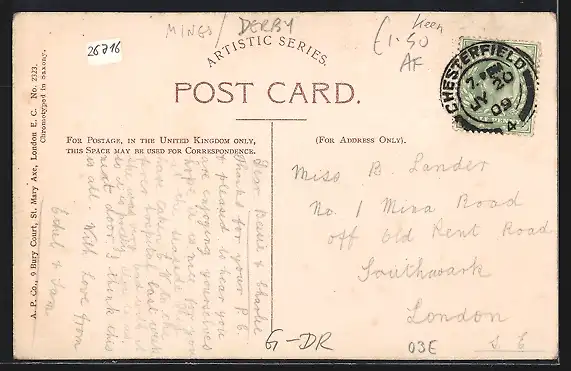 MINES / DERBY
26716
ARTISTIC SERIES.
Keen
£1.50
AF
CHESTERFIELD
7 PM
JY 20
09
4
POST CARD.
A. P. Co., 9 Bury Court, St. Mary Axe, London E. C. No. 2323.
Chromotyped in Saxony.
For Postage, in the United Kingdom only,
this Space may be used for Correspondence.
(For Address Only).
Dear Bessie & Charlie
thanks for your P.C.
& pleased to hear you
are enjoying yourselves
hope it is nice for you
at the seaside
was taken to
hospital last week
she was
next door. I think this
is all. With Love from
Ethel & Sam
Miss B. Lander
No. 1 Mina Road
off Old Kent Road
Southwark
London
S. E
G-DR
03E